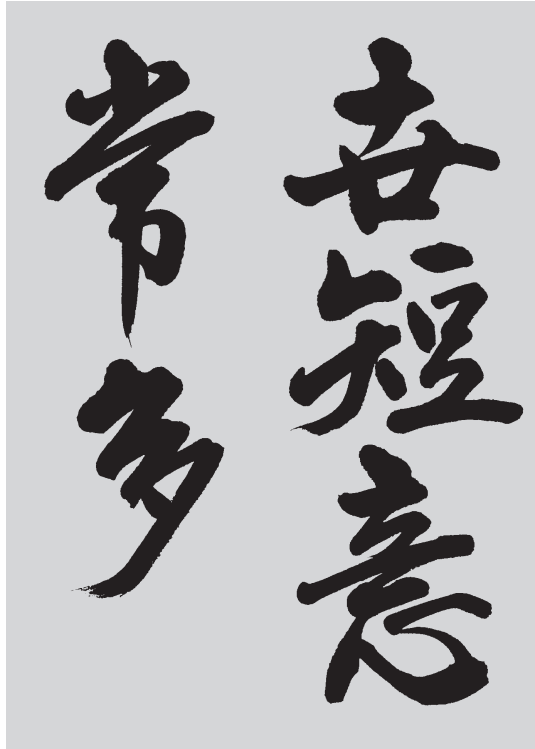 世短意
常多